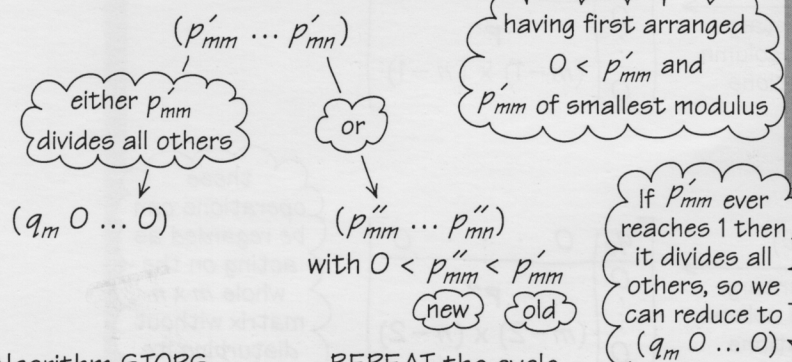 (p′mm ... p′mn)
having first arranged
0 < p′mm and
p′mm of smallest modulus
either p′mm
divides all others
or
(qm 0 ... 0)
(p″mm ... p″mn)
with 0 < p″mm < p′mm
new old
If p′mm ever
reaches 1 then
it divides all
others, so we
can reduce to
(qm 0 ... 0)
REPEAT the cycle